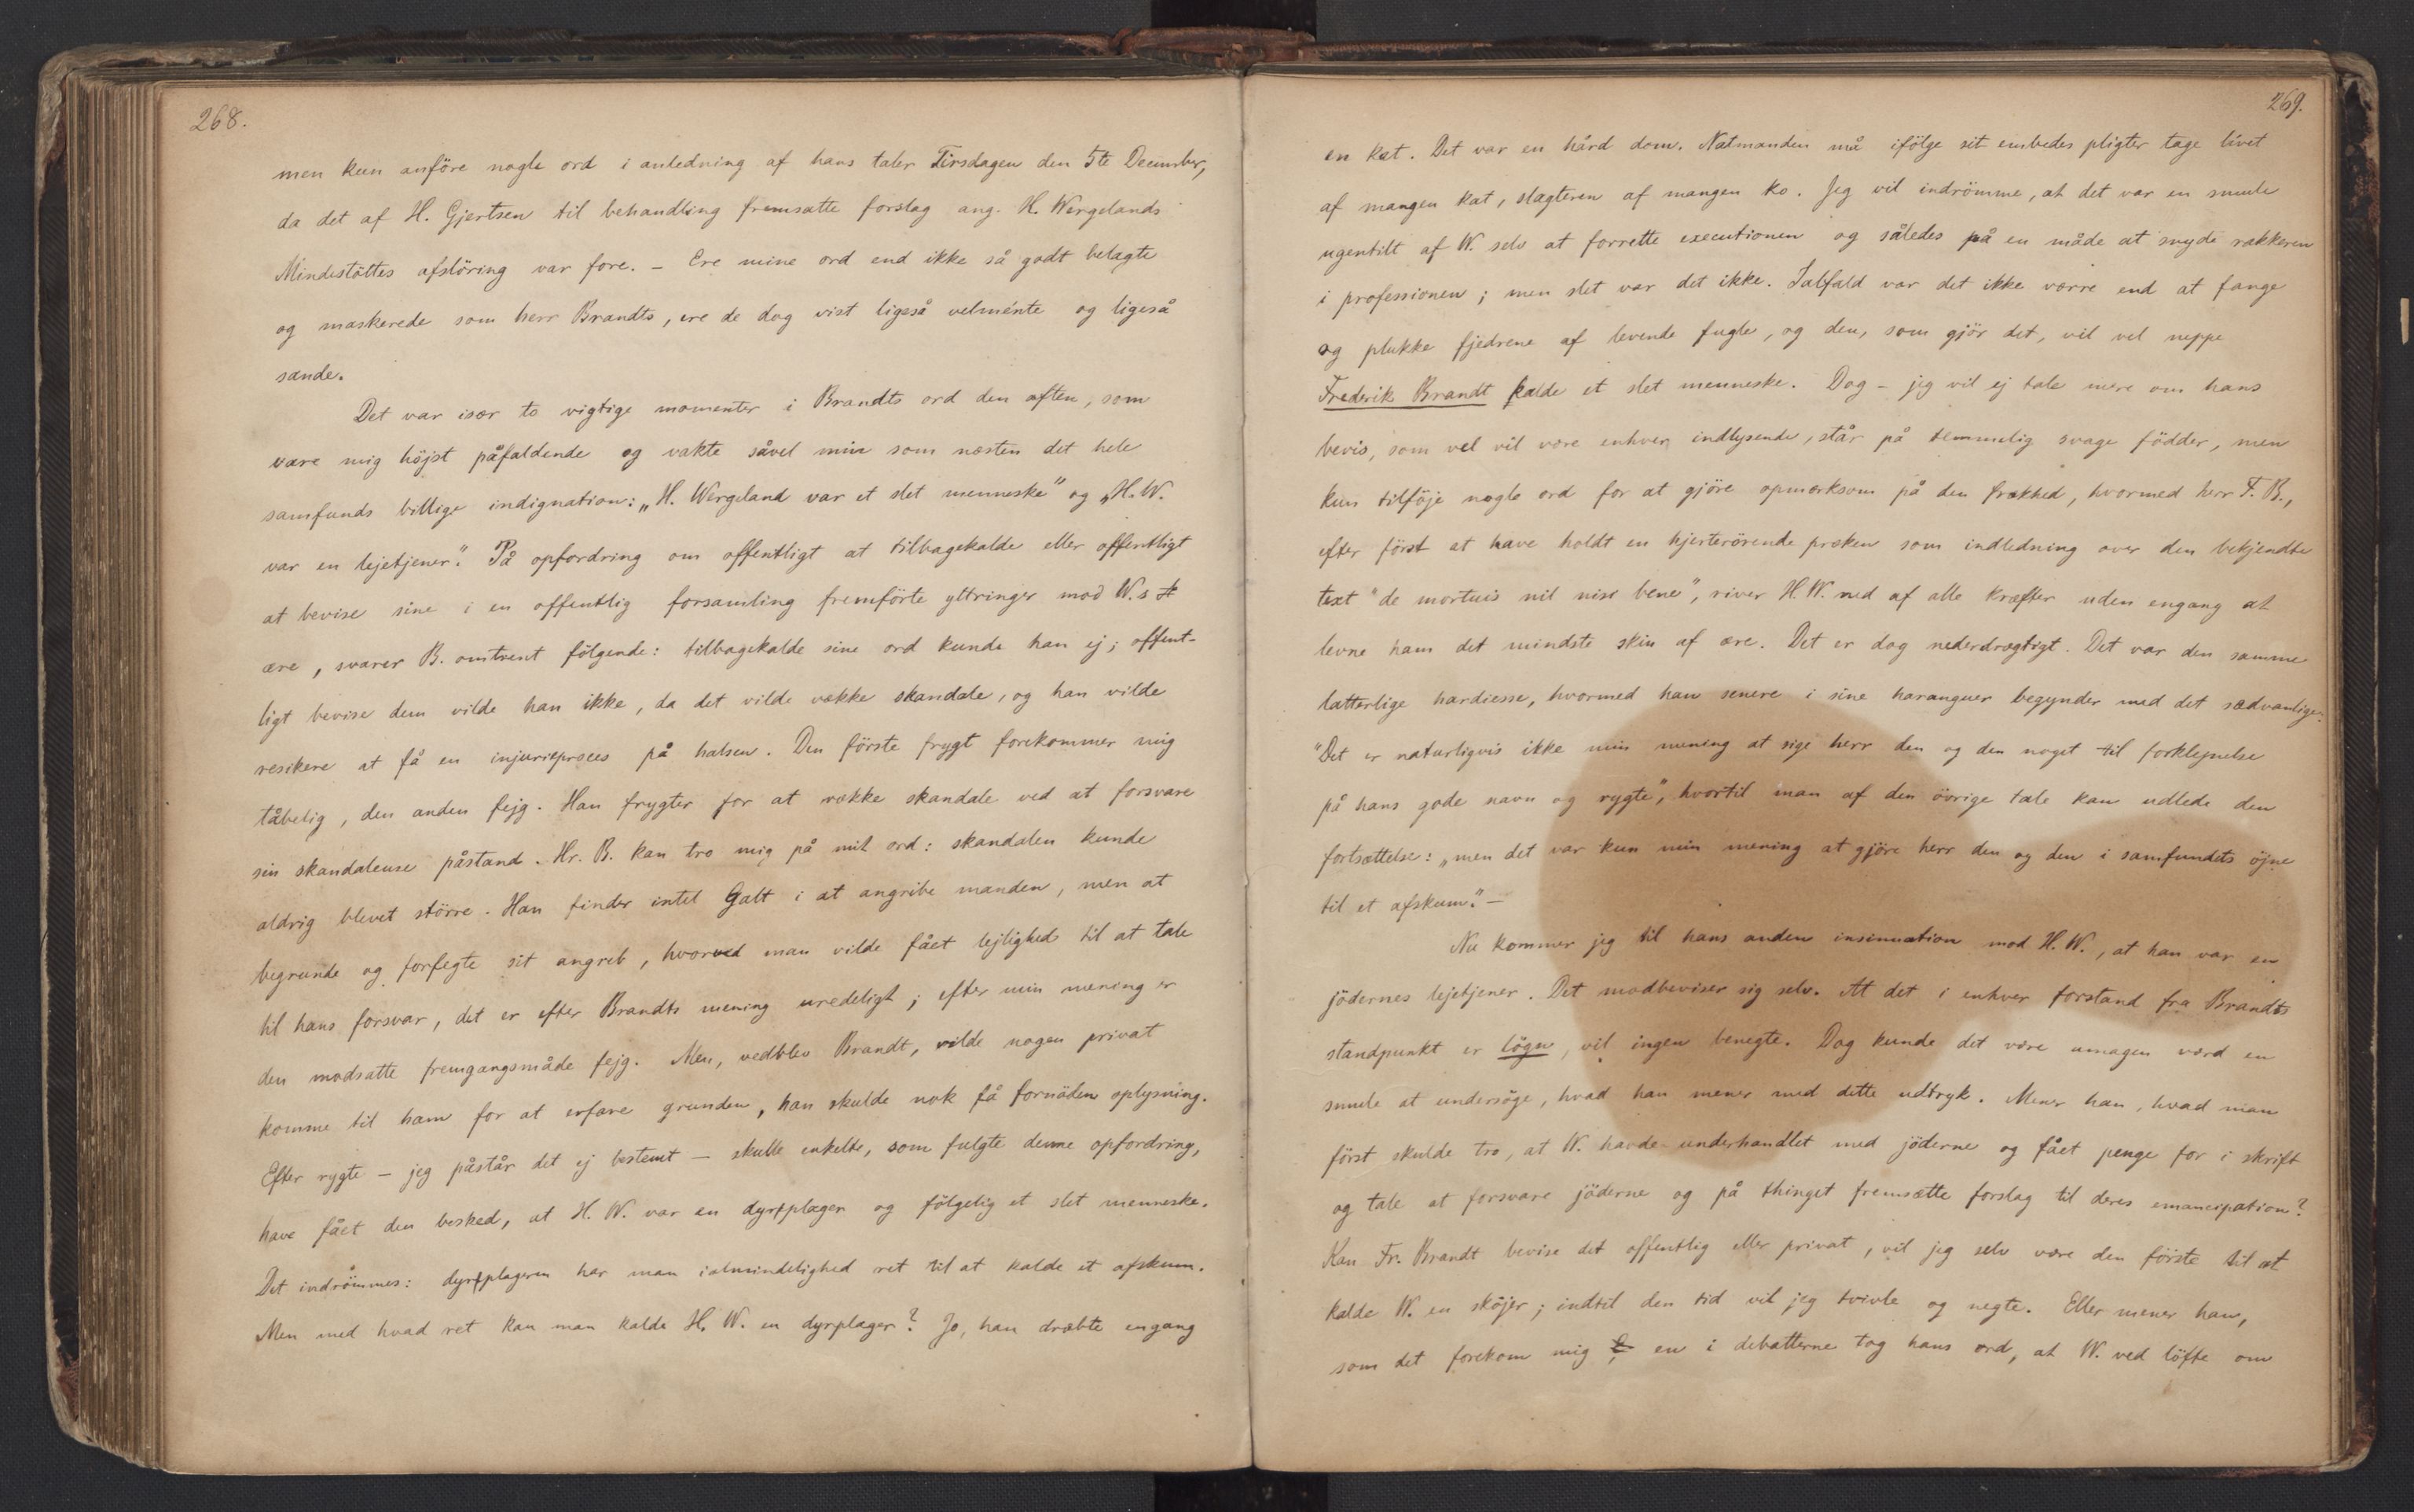 268.
men kun anföre nogle ord i anledning af hans taler Tirsdagen den 5te December,
da det af H. Gjertsen til behandling fremsatte forslag ang. H. Wergelands
Mindestöttes afslöring var fore. – Ere mine ord end ikke så godt belagte
og maskerede som herr Brandts, ere de dog vist ligeså velménte og ligeså
sande.
Det var især to vigtige momenter i Brandts ord den aften, som
vare mig höjst påfaldende og vakte såvel min som næsten det hele
samfunds billige indignation: „H. Wergeland var et slet menneske" og „H. W.
var en lejetjener." På opfordring om offentligt at tilbagekalde eller offentligt
at bevise sine i en offentlig forsamling fremförte yttringer mod W.s
ære, svarer B. omtrent fölgende: tilbagekalde sine ord kunde han ej; offent-
ligt bevise dem vilde han ikke, da det vilde vække skandale, og han vilde
resikere at få en injurieproces på halsen. Den förste frygt forekommer mig
tåbelig, den anden fejg. Han frygter for at vække skandale ved at forsvare
sin skandaleuse påstand. Hr. B. kan tro mig på mit ord: skandalen kunde
aldrig blevet större. Han finder intet Galt i at angribe manden, men at
begrunde og forfegte sit angreb, hvorved man vilde fået lejlighed til at tale
til hans forsvar, det er efter Brandts mening uredeligt; efter min mening er
den modsatte fremgangsmåde fejg. Men, vedblev Brandt, vilde nogen privat
komme til ham for at erfare grunden, han skulde nok få fornöden oplysning.
Efter rygte – jeg påstår det ej bestemt – skulle enkelte, som fulgte denne opfordring,
have fået den besked, at H. W. var en dyrplager og fölgelig et slet menneske.
Det indrömmes: dyrplageren har man ialmindelighed ret til at kalde et afskum.
Men med hvad ret kan man kalde H. W. en dyrplager? Jo, han dræbte engang
269.
en kat. Det var en hård dom. Natmanden må ifölge sit embedes pligter tage livet
af mangen kat, slagteren af mangen ko. Jeg vil indrömme, at det var en smule
ugentilt af W. selv at forrette executionen og således på en måde at snyde rakkeren
i professionen; men slet var det ikke. Ialfald var det ikke værre end at fange
og plukke fjedrene af levende fugle, og den, som gjör det, vil vel neppe
Frederik Brandt kalde et slet menneske. Dog – jeg vil ej tale mere om hans
bevis, som vel vil være enhver indlysende, står på temmelig svage födder, men
kun tilföje nogle ord for at gjöre opmærksom på den frækhed, hvormed herr F. B.,
efter först at have holdt en hjerterörende præken som indledning over den bekjendte
text "de mortuis nil nisi bene", river H. W. ned af alle kræfter uden engang at
levne ham det mindste skin af ære. Det er dog nederdrægtigt. Det var den samme
latterlige hardiesse, hvormed han senere i sine haranguer begynder med det sædvanlige:
"Det er naturligvis ikke min mening at sige herr den og den noget til forklejnelse
på hans gode navn og rygte", hvortil man af den övrige tale kan udlede den
fortsættelse: „men det var kun min mening at gjöre herr den og den i samfundets öjne
til et afskum." –
Nu kommer jeg til hans anden insinuation mod H. W., at han var en
jödernes lejetjener. Det modbeviser sig selv. At det i enhver forstand fra Brandts
standpunkt er lögn, vil ingen benegte. Dog kunde det være umagen værd en
smule at undersöge, hvad han mener med dette udtryk. Mener han, hvad man
först skulde tro, at W. havde underhandlet med jöderne og fået penge for i skrift
og tale at forsvare jöderne og på thinget fremsætte forslag til deres emancipation?
Kan Fr. Brandt bevise det offentlig eller privat, vil jeg selv være den förste til at
kalde W. en sköjer; indtil den tid vil jeg tvivle og negte. Eller mener han,
som det forekom mig en i debatterne tog hans ord, at W. ved löfte om